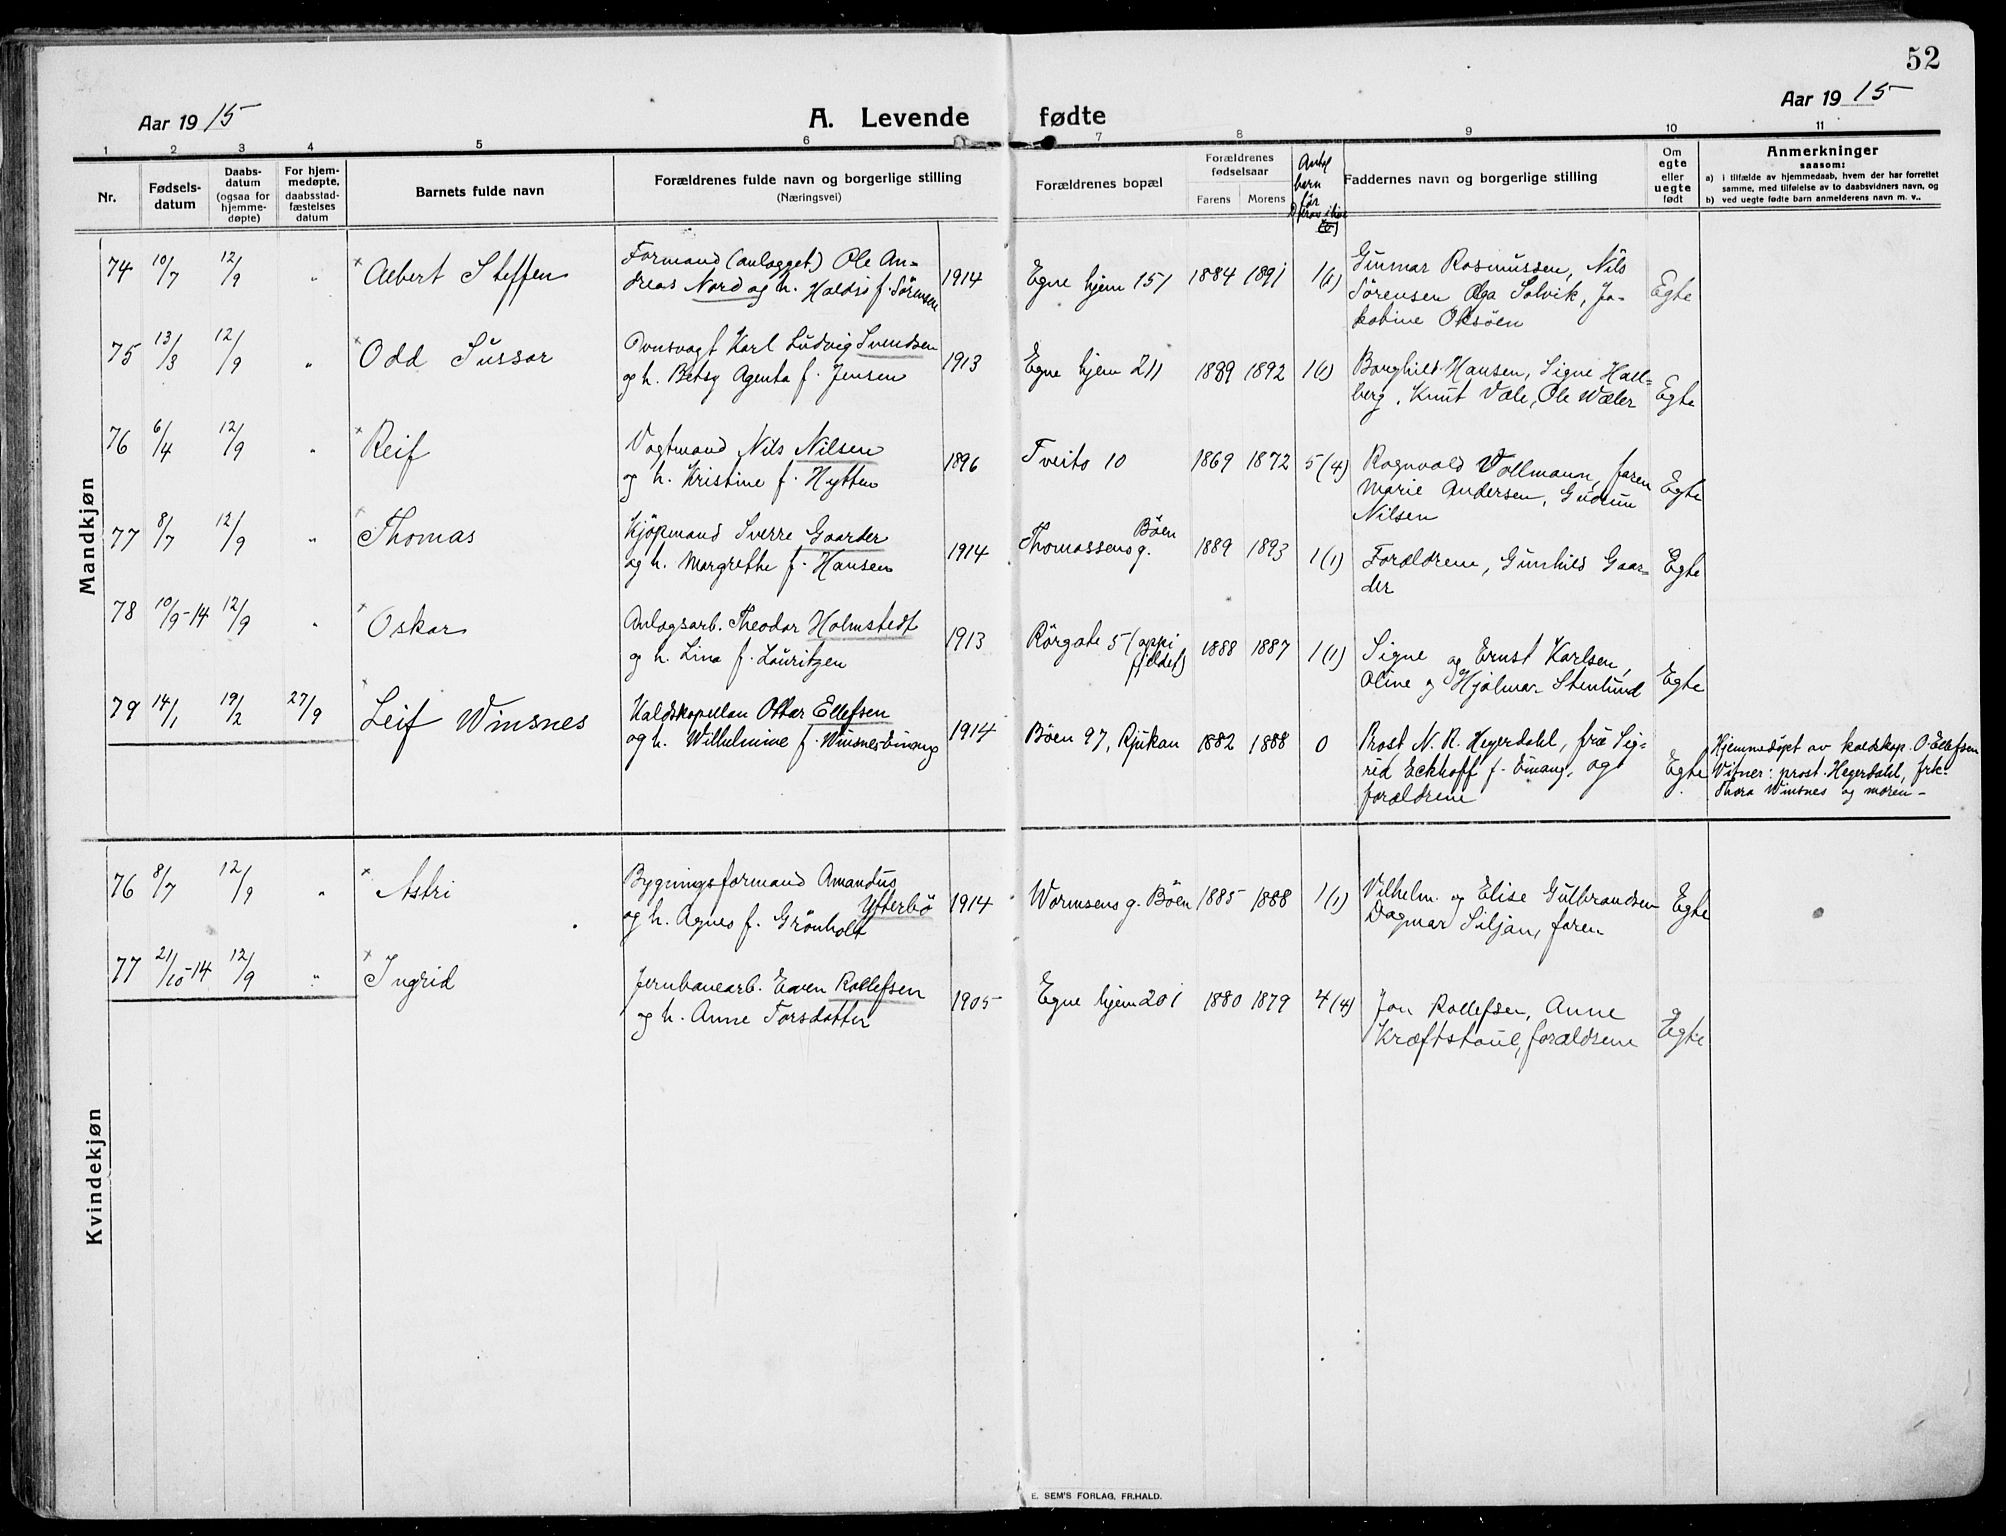 52
Aar 1915
A. Levende fødte
Aar 1915
1 2 3 4 5 6 7 8 9 10 11
Nr.
Fødsels-
datum
Daabs-
datum
(ogsaa for
hjemme-
døpte)
For hjem-
medøpte,
daabsstad-
fæstelses
datum
Barnets fulde navn
Forældrenes fulde navn og borgerlige stilling
(Næringsvei)
Forældrenes bopæl
Forældrenes
fødselsaar
Farens Morens
Antal
barn
før
Faddernes navn og borgerlige stilling
Om
egte
eller
uegte
født
Anmerkninger
saasom:
a) i tilfælde av hjemmedaab, hvem der har forrettet
samme, med tilføielse av to daabsvidners navn, og
b) ved uegte fødte barn anmelderens navn m. v..
Mandkjøn
74 10/7 12/9 " × Albert Steffen
Formand (anlægget) Ole An-
dreas Nord og h. Haldis f. Sörensen
1914 Egne hjem 151 1884 1891 1(1)
Gunnar Rasmussen, Nils
Sörensen Olga Solvik, Ja-
kobine Oksöen
Egte
75 13/3 12/9 " × Odd Sussar
Ovnsvagt Karl Ludvig Svendsen
og h. Betsy Agenta f. Jensen
1913 Egne hjem 211 1889 1892 1(1)
Borghild Hansen, Signe Hall-
berg, Knut Vale, Ole Wæler
Egte
76 6/4 12/9 " × Reif
Vagtmand Nils Nilsen
og h. Kristine f. Hytten
1896 Tveito 10 1869 1872 5(4)
Ragnvald Vollmann, faren
Marie Andersen, Gudrun
Nilsen
Egte
77 8/7 12/9 " × Thomas
Kjöpmand Sverre Gaarder
og h. Margrethe f. Hansen
1914 Thomassens g. Böen 1889 1893 1(1)
Forældrene, Gunhild Gaar-
der
Egte
78 10/9-14 12/9 " × Oskar
Anlægsarb. Theodor Holmstedt
og h. Lina f. Lauritzen
1913 Rörgate 5 (oppi
fjeldet) 1888 1887 1(1)
Signe og Ernst Karlsen,
Oline og Hjalmar Stenlund
Egte
79 14/1 19/2 27/9 × Leif Winsnes
Kaldskapellan Ottar Ellefsen
og h. Wilhelmine f. Winsnes Einang
1914 Böen 97, Rjukan 1882 1888 0
Prost N. R. Heyerdahl, frü Sig-
rid Eckhoff f. Einang, og
forældrene
Egte
Hjemmedöpt av kaldskap. O. Ellefsen
Vitner: prost Heyerdahl, frk.
Thora Winsnes og moren -
Kvindekjøn
76 8/7 12/9 " × Astri
Bygningsformand Amandus
Ytterbö
og h. Agnes f. Grönholt
1914 Wormsens g. Böen 1885 1888 1(1)
Vilhelm og Elise Gulbrandsen
Dagmar Siljan, faren
Egte
77 21/10-14 12/9 " × Ingrid
Jernbanearb. Even Rollefsen
og h. Anne Torsdatter
1905 Egne hjem 201 1880 1879 4(4)
Jon Rollefsen, Anne
Kræftstoül, forældrene
Egte
E. SEM'S FORLAG, FR.HALD.